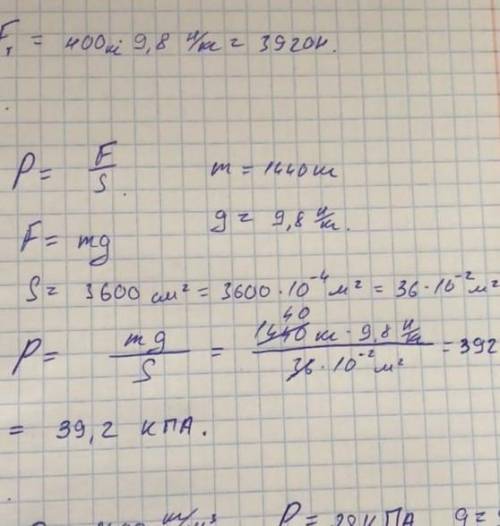 F₁ = 400кг 9,8 Н/кг = 3920Н.
P = F/S
m = 1440кг
F = mg
g = 9,8 Н/кг.
S = 3600 см² = 3600·10⁻⁴ м² = 36·10⁻² м²
P = mg/S = 1440 кг · 9,8 Н/кг / 36·10⁻² м² = 392
40
= 39,2 КПА.
P = КПА g =